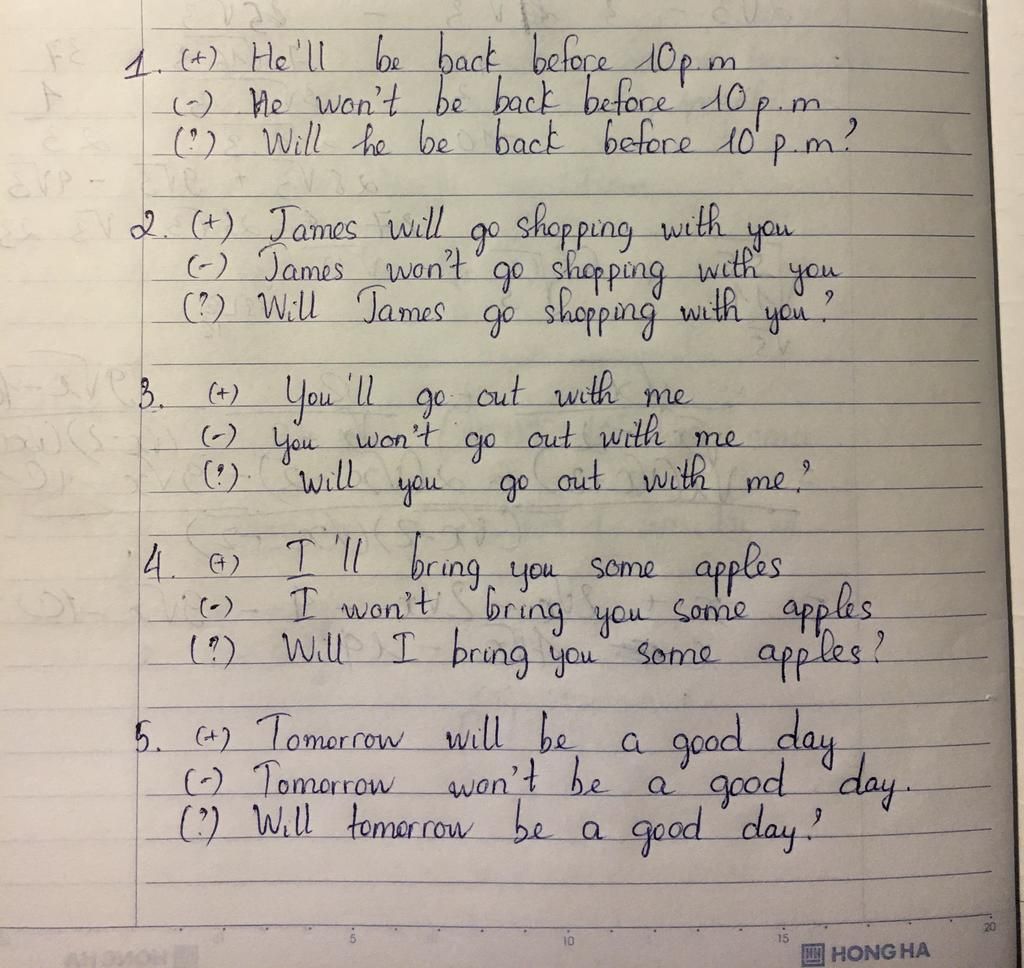 1. (+) He'll be back before 10p.m
(-) He won't be back before 10 p.m
(?) Will he be back before 10 p.m?
2. (+) James will go shopping with you
(-) James won't go shopping with you
(?) Will James go shopping with you?
3. (+) You'll go out with me
(-) You won't go out with me
(?) Will you go out with me?
4. (+) I'll bring you some apples
(-) I won't bring you some apples
(?) Will I bring you some apples?
5. (+) Tomorrow will be a good day
(-) Tomorrow won't be a good day.
(?) Will tomorrow be a good day?
5 10 15 20
HONG HA